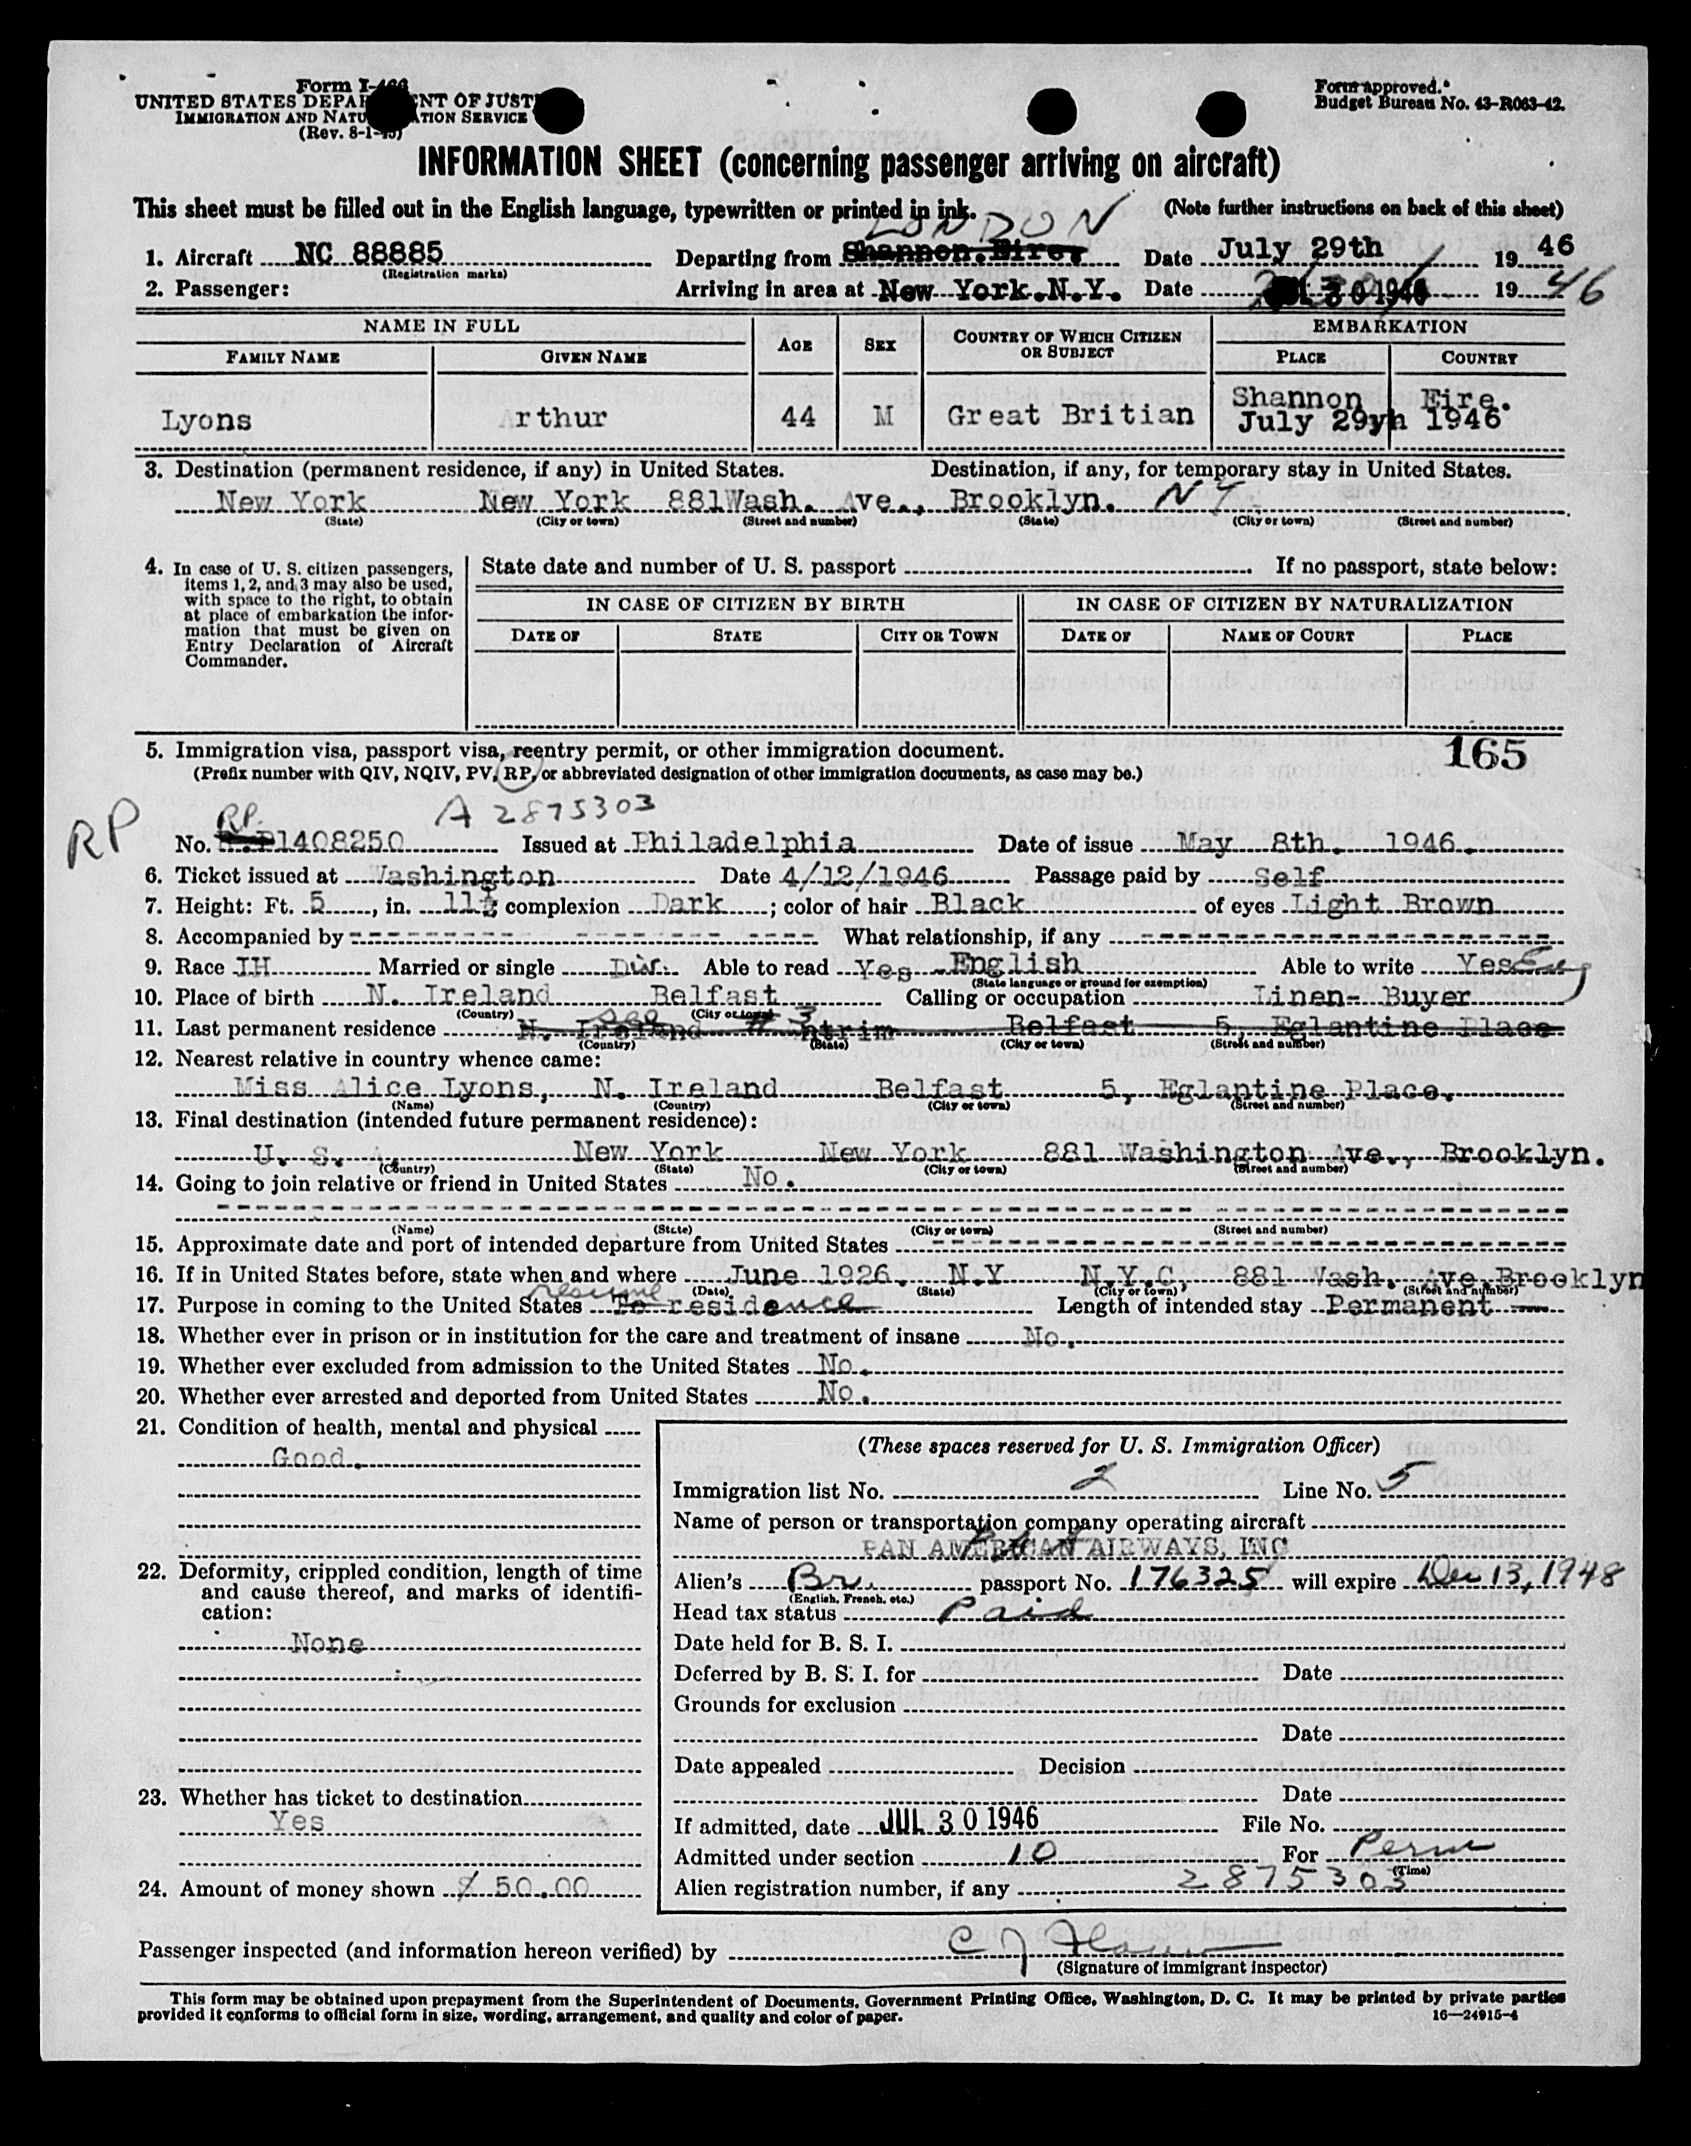 Form I-466
UNITED STATES DEPARTMENT OF JUSTICE
IMMIGRATION AND NATURALIZATION SERVICE
(Rev. 8-1-45)
Form approved.
Budget Bureau No. 43-R063-42.
INFORMATION SHEET (concerning passenger arriving on aircraft)
This sheet must be filled out in the English language, typewritten or printed in ink. (Note further instructions on back of this sheet)
LONDON
1. Aircraft NC 88885 Departing from Shannon.Eire, Date July 29th 19 46
(Registration marks)
2. Passenger: Arriving in area at New York.N.Y. Date JUL 30 1946 19 46
NAME IN FULL AGE SEX COUNTRY OF WHICH CITIZEN OR SUBJECT EMBARKATION
FAMILY NAME GIVEN NAME PLACE COUNTRY
Shannon Eire.
Lyons Arthur 44 M Great Britian July 29yh 1946
3. Destination (permanent residence, if any) in United States. Destination, if any, for temporary stay in United States.
New York New York 881Wash. Ave., Brooklyn. N Y
(State) (City or town) (Street and number) (State) (City or town) (Street and number)
4. In case of U. S. citizen passengers, items 1, 2, and 3 may also be used, with space to the right, to obtain at place of embarkation the information that must be given on Entry Declaration of Aircraft Commander.
State date and number of U. S. passport If no passport, state below:
IN CASE OF CITIZEN BY BIRTH IN CASE OF CITIZEN BY NATURALIZATION
DATE OF STATE CITY OR TOWN DATE OF NAME OF COURT PLACE
5. Immigration visa, passport visa, reentry permit, or other immigration document. 165
(Prefix number with QIV, NQIV, PV, RP, or abbreviated designation of other immigration documents, as case may be.)
RP RP. A 2875303
No. 1408250 Issued at Philadelphia Date of issue May 8th. 1946.
6. Ticket issued at Washington Date 4/12/1946 Passage paid by Self
7. Height: Ft. 5, in. 11½ complexion Dark; color of hair Black of eyes Light Brown
8. Accompanied by What relationship, if any
9. Race IH Married or single Div. Able to read Yes English Able to write Yes Eng
(State language or ground for exemption)
10. Place of birth N. Ireland Belfast Calling or occupation Linen- Buyer
(Country) (City or town)
see # 3
11. Last permanent residence N. Ireland Antrim Belfast 5, Eglantine Place.
(Country) (State) (City or town) (Street and number)
12. Nearest relative in country whence came:
Miss Alice Lyons, N. Ireland Belfast 5, Eglantine Place.
(Name) (Country) (City or town) (Street and number)
13. Final destination (intended future permanent residence):
U. S. A. New York New York 881 Washington Ave., Brooklyn.
(Country) (State) (City or town) (Street and number)
14. Going to join relative or friend in United States No.
(Name) (State) (City or town) (Street and number)
15. Approximate date and port of intended departure from United States
16. If in United States before, state when and where June 1926. N.Y N.Y.C, 881 Wash. Ave.Brooklyn
(Date) (State) (City or town) (Street and number)
resume
17. Purpose in coming to the United States To residence Length of intended stay Permanent
18. Whether ever in prison or in institution for the care and treatment of insane No.
19. Whether ever excluded from admission to the United States No.
20. Whether ever arrested and deported from United States No.
21. Condition of health, mental and physical
Good.
22. Deformity, crippled condition, length of time and cause thereof, and marks of identification:
None
23. Whether has ticket to destination
Yes
24. Amount of money shown $ 50.00
(These spaces reserved for U. S. Immigration Officer)
Immigration list No. 2 Line No. 5
Name of person or transportation company operating aircraft
PAN AMERICAN AIRWAYS, INC
Alien's Br. passport No. 176325 will expire Dec 13, 1948
(English, French, etc.)
Head tax status Paid
Date held for B. S. I.
Deferred by B. S. I. for Date
Grounds for exclusion
Date
Date appealed Decision
Date
If admitted, date JUL 30 1946 File No.
Admitted under section 10 For Perm
(Time)
Alien registration number, if any 2875303
Passenger inspected (and information hereon verified) by
(Signature of immigrant inspector)
This form may be obtained upon prepayment from the Superintendent of Documents, Government Printing Office, Washington, D. C. It may be printed by private parties
provided it conforms to official form in size, wording, arrangement, and quality and color of paper. 16—24915-4